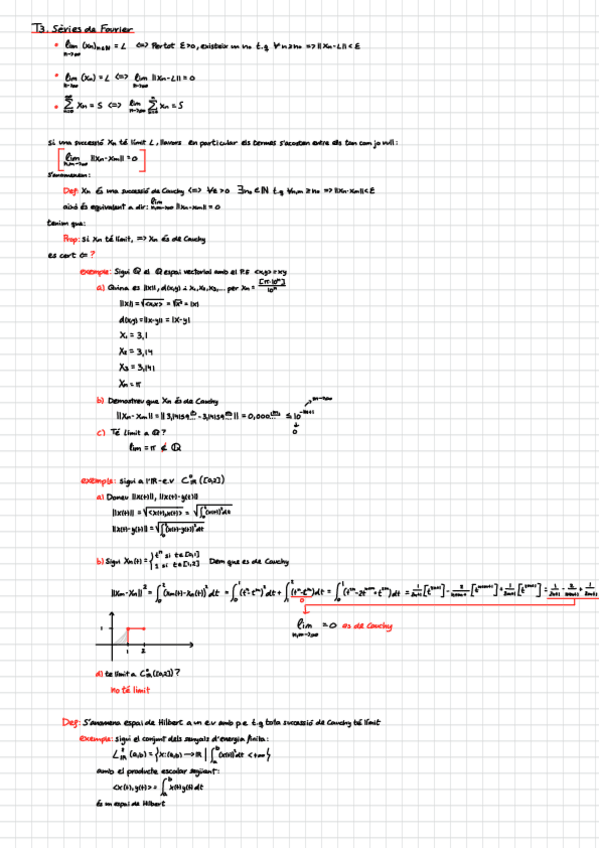 T3. Sèries de Fourier
• lim (xn)n∈N = L <=> Per tot ε>0, existeix un no t.q ∀n≥no => ||xn-L||<ε
n→∞
• lim (xn) = L <=> lim ||xn-L|| = 0
n→∞ n→∞
• ∑ xn = S <=> lim ∑ xn = S
Si una successió xn té límit L, llavors en particular els termes s'acosten entre ells tan com jo vull:
[lim ||xn-xm|| = 0]
n,m→∞
s'anomenen:
Def: xn és una successió de Cauchy <=> ∀ε>0 ∃no∈N t.q ∀n,m≥no => ||xn-xm||<ε
això és equivalent a dir: lim ||xn-xm|| = 0
n,m→∞
teniem que:
Prop: si xn té límit, => xn és de Cauchy
es cert <= ?
exemple: Sigui Q el Q espai vectorial amb el P.E <x,y> = xy
a) Quina es ||x||, d(x,y) i x1, x2, x3,... per xn = [π·10ⁿ]/10ⁿ
||x|| = √<x,x> = √x² = |x|
d(x,y) = ||x-y|| = |x-y|
x1 = 3,1
x2 = 3,14
x3 = 3,141
xn = π
b) Demostreu que xn és de Cauchy
||xn-xm|| = ||3,14159... - 3,14159...|| = 0,000...
n,m→∞
0
c) Té límit a Q?
lim = π ∉ Q
exemple: sigui a l'R-e.v C°R([0,2])
a) Doneu ||x(t)||, ||x(t)-y(t)||
||x(t)|| = √<x(t),x(t)> = √∫₀²(x(t))²dt
||x(t)-y(t)|| = √∫₀²(x(t)-y(t))²dt
b) Sigui xn(t) = { tⁿ si t∈[0,1]
1 si t∈[1,2] Dem que es de Cauchy
||xm-xn||² = ∫₀²(xm(t)-xn(t))²dt = ∫₀¹(tⁿ-tᵐ)²dt + ∫₁²
lim = 0 es de Cauchy
n,m→∞
1
1 2
d) té límit a C°R([0,2])?
No té límit
Def: S'anomena espai de Hilbert a un e.v amb p.e t.q tota successió de Cauchy té límit
Exemple: sigui el conjunt dels senyals d'energia finita:
L²R(a,b) = {x:(a,b)→R | ∫ₐᵇ(x(t))²dt <+∞}
amb el producte escalar següent:
<x(t),y(t)> = ∫ₐᵇ x(t)y(t)dt
és un espai de Hilbert